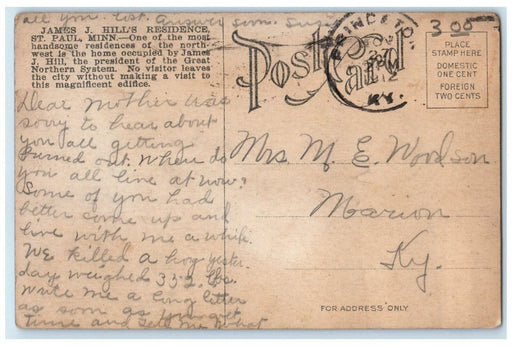 all you lost. Answer soon.
JAMES J. HILL'S RESIDENCE,
ST. PAUL, MINN.—One of the most
handsome residences of the north-
west is the home occupied by James
J. Hill, the president of the Great
Northern System. No visitor leaves
the city without making a visit to
this magnificent edifice.
Dear Mother was
sorry to hear about
you all getting
burned out. Where do
you all live at now?
Some of you had
better come up and
live with me a while.
We killed a hog yester-
day weighed 332 lbs.
Write me a long letter
as soon as you get
time and tell me what
Post Card
PRINCETON,
NOV
27
KY.
3 00
PLACE
STAMP HERE
DOMESTIC
ONE CENT
FOREIGN
TWO CENTS
Mrs M. E. Woodson
Marion
Ky.
FOR ADDRESS ONLY